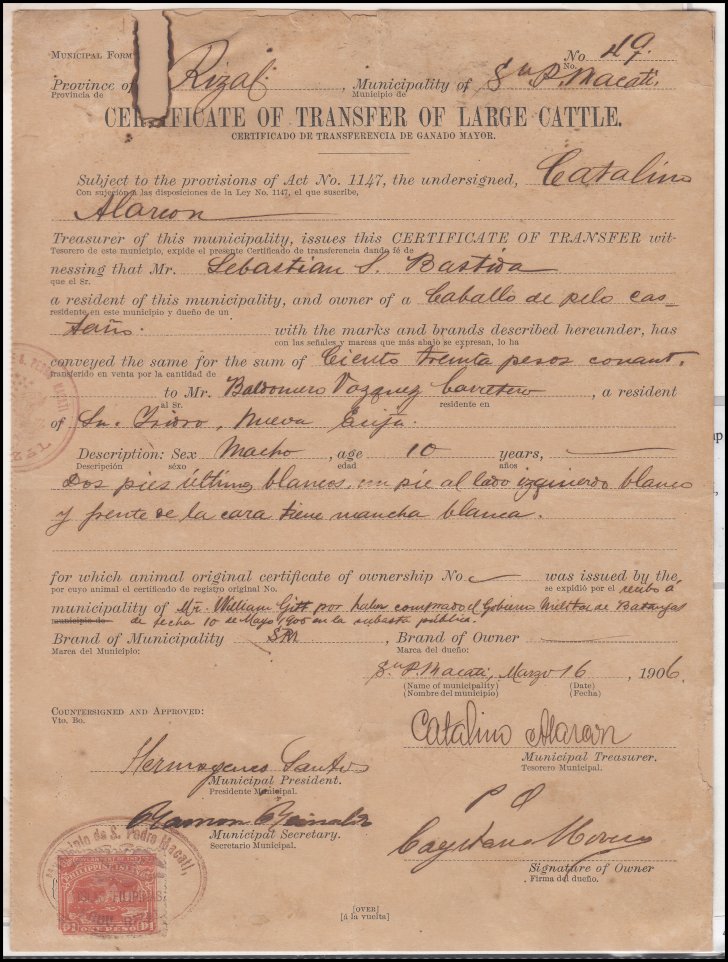 MUNICIPAL FORM
No 49.
No.
Province of Rizal, Municipality of Sn. P. Macati.
Provincia de Municipio de
CERTIFICATE OF TRANSFER OF LARGE CATTLE.
CERTIFICADO DE TRANSFERENCIA DE GANADO MAYOR.
Subject to the provisions of Act No. 1147, the undersigned, Catalino
Con sujeción a las disposiciones de la Ley No. 1147, el que suscribe,
Alarcon
Treasurer of this municipality, issues this CERTIFICATE OF TRANSFER wit-
Tesorero de este municipio, expide el presente Certificado de transferencia dando fé de
nessing that Mr. Sebastian S. Bastida
que el Sr.
a resident of this municipality, and owner of a Caballo de pelo cas_
residente en este municipio y dueño de un
taño. with the marks and brands described hereunder, has
con las señales y marcas que más abajo se expresan, lo ha
conveyed the same for the sum of Ciento treinta pesos conant.
transferido en venta por la cantidad de
to Mr. Baldomero Vazquez, a resident
al Sr. residente en
of Sn. Isidro, Nueva Ecija.
Description: Sex Macho, age 10 years,
Descripción séxo edad años
Dos pies últimos blancos un pie al lado izquierdo blanco
y frente de la cara tiene mancha blanca.
for which animal original certificate of ownership No was issued by the
por cuyo animal el certificado de registro original No. se expidió por el recibo á
municipality of Mr. William Gitt por haber comprado el Gobierno Militar de Batangas
municipio de de fecha 10 de Mayo 1905 en la subasta pública.
Brand of Municipality SPM, Brand of Owner
Marca del Municipio: Marca del dueño:
Sn. P. Macati, Marzo 16, 1906.
(Name of municipality) (Date)
(Nombre del municipio) (Fecha)
COUNTERSIGNED AND APPROVED:
Vto. Bo.
Catalino Alarcon
Municipal Treasurer.
Tesorero Municipal.
Hermogenes Santos
Municipal President.
Presidente Municipal.
Ramon
Municipal Secretary.
Secretario Municipal.
P O
Cayetano
Signature of Owner
Firma del dueño.
Municipio de S. Pedro Macati,
PHILIPPINE
P1 ONE PESO P1
[OVER]
[á la vuelta]